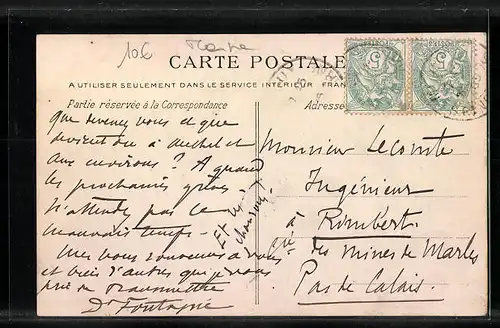 10€
CARTE POSTALE
A UTILISER SEULEMENT DANS LE SERVICE INTÉRIEUR FRAN
Partie réservée à la Correspondance
Adresse
Que devenez vous et que
devient on à Auchel et
aux environs ? A quand
les prochaines grèves
N'attendez pas le
mauvais temps -
Mes bons souvenirs à vous
et ceux d'autres que je vous
prie de transmettre
Dr
Et les
chansons ?
Monsieur Lecomte
Ingénieur
à Rimbert
des Mines de Marles
Pas de Calais.
5
5